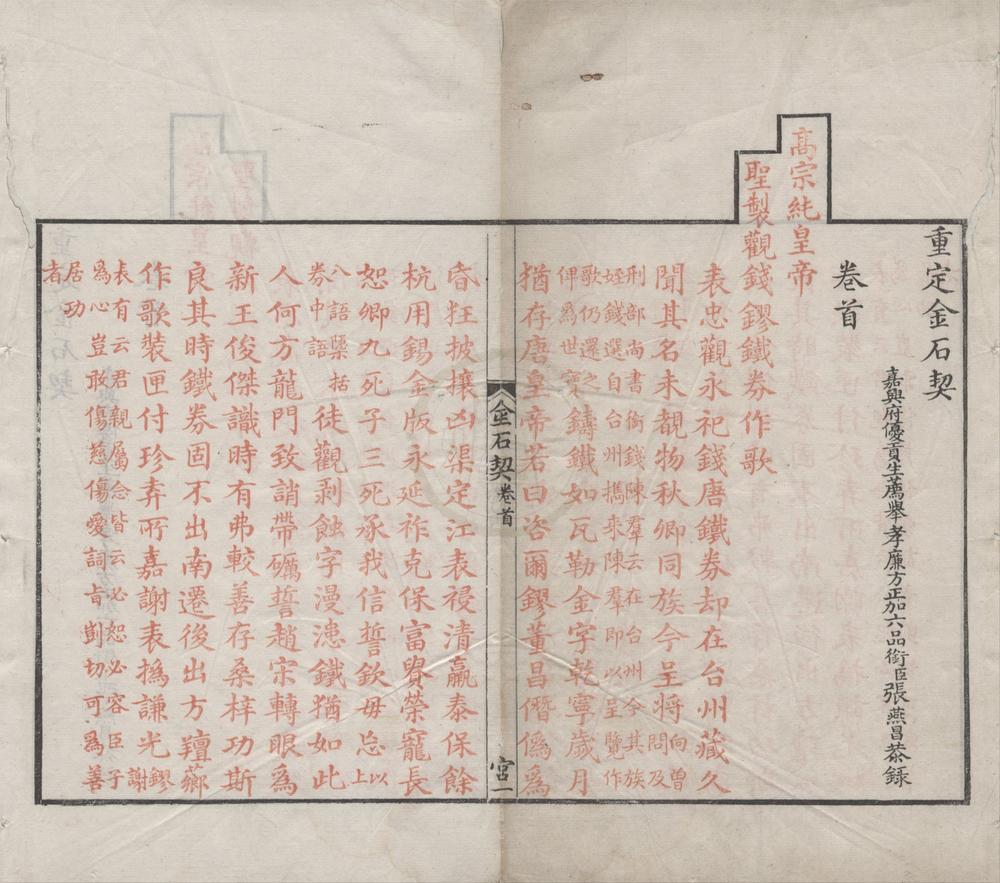 重定金石契
嘉興府優貢生薦舉孝廉方正加六品銜臣張燕昌恭錄
卷首
高宗純皇帝
聖製觀錢鏐鐵券作歌
表忠觀永祀錢唐鐵券却在台州藏久
聞其名未覩物秋卿同族今呈將向曾問及
刑部尚書銜錢陳羣云在台州今其族
姪錢選自台州擕來陳羣即以呈覽作
歌仍還之俾爲世寳鑄鐵如瓦勒金字乾寧歲月
猶存唐皇帝若曰咨爾鏐董昌僭僞爲
金石契 卷首 宮一
昏狂披攘凶渠定江表祲清嬴泰保餘
杭用錫金版永延祚克保富貴榮寵長
恕卿九死子三死承我信誓欽毋忘以上
八語檃括券中語徒觀剥蝕字漫漶鐵猶如此
人何方龍門致誚帶礪誓趙宋轉眼爲
新王俊傑識時有弗較善存桑梓功斯
良其時鐵券固不出南遷後出方羶薌
作歌裝匣付珍弆所嘉謝表撝謙光鏐謝
表有云君親屬念皆云必恕必容臣子
爲心豈敢傷慈傷愛詞旨剴切可爲善
居功者